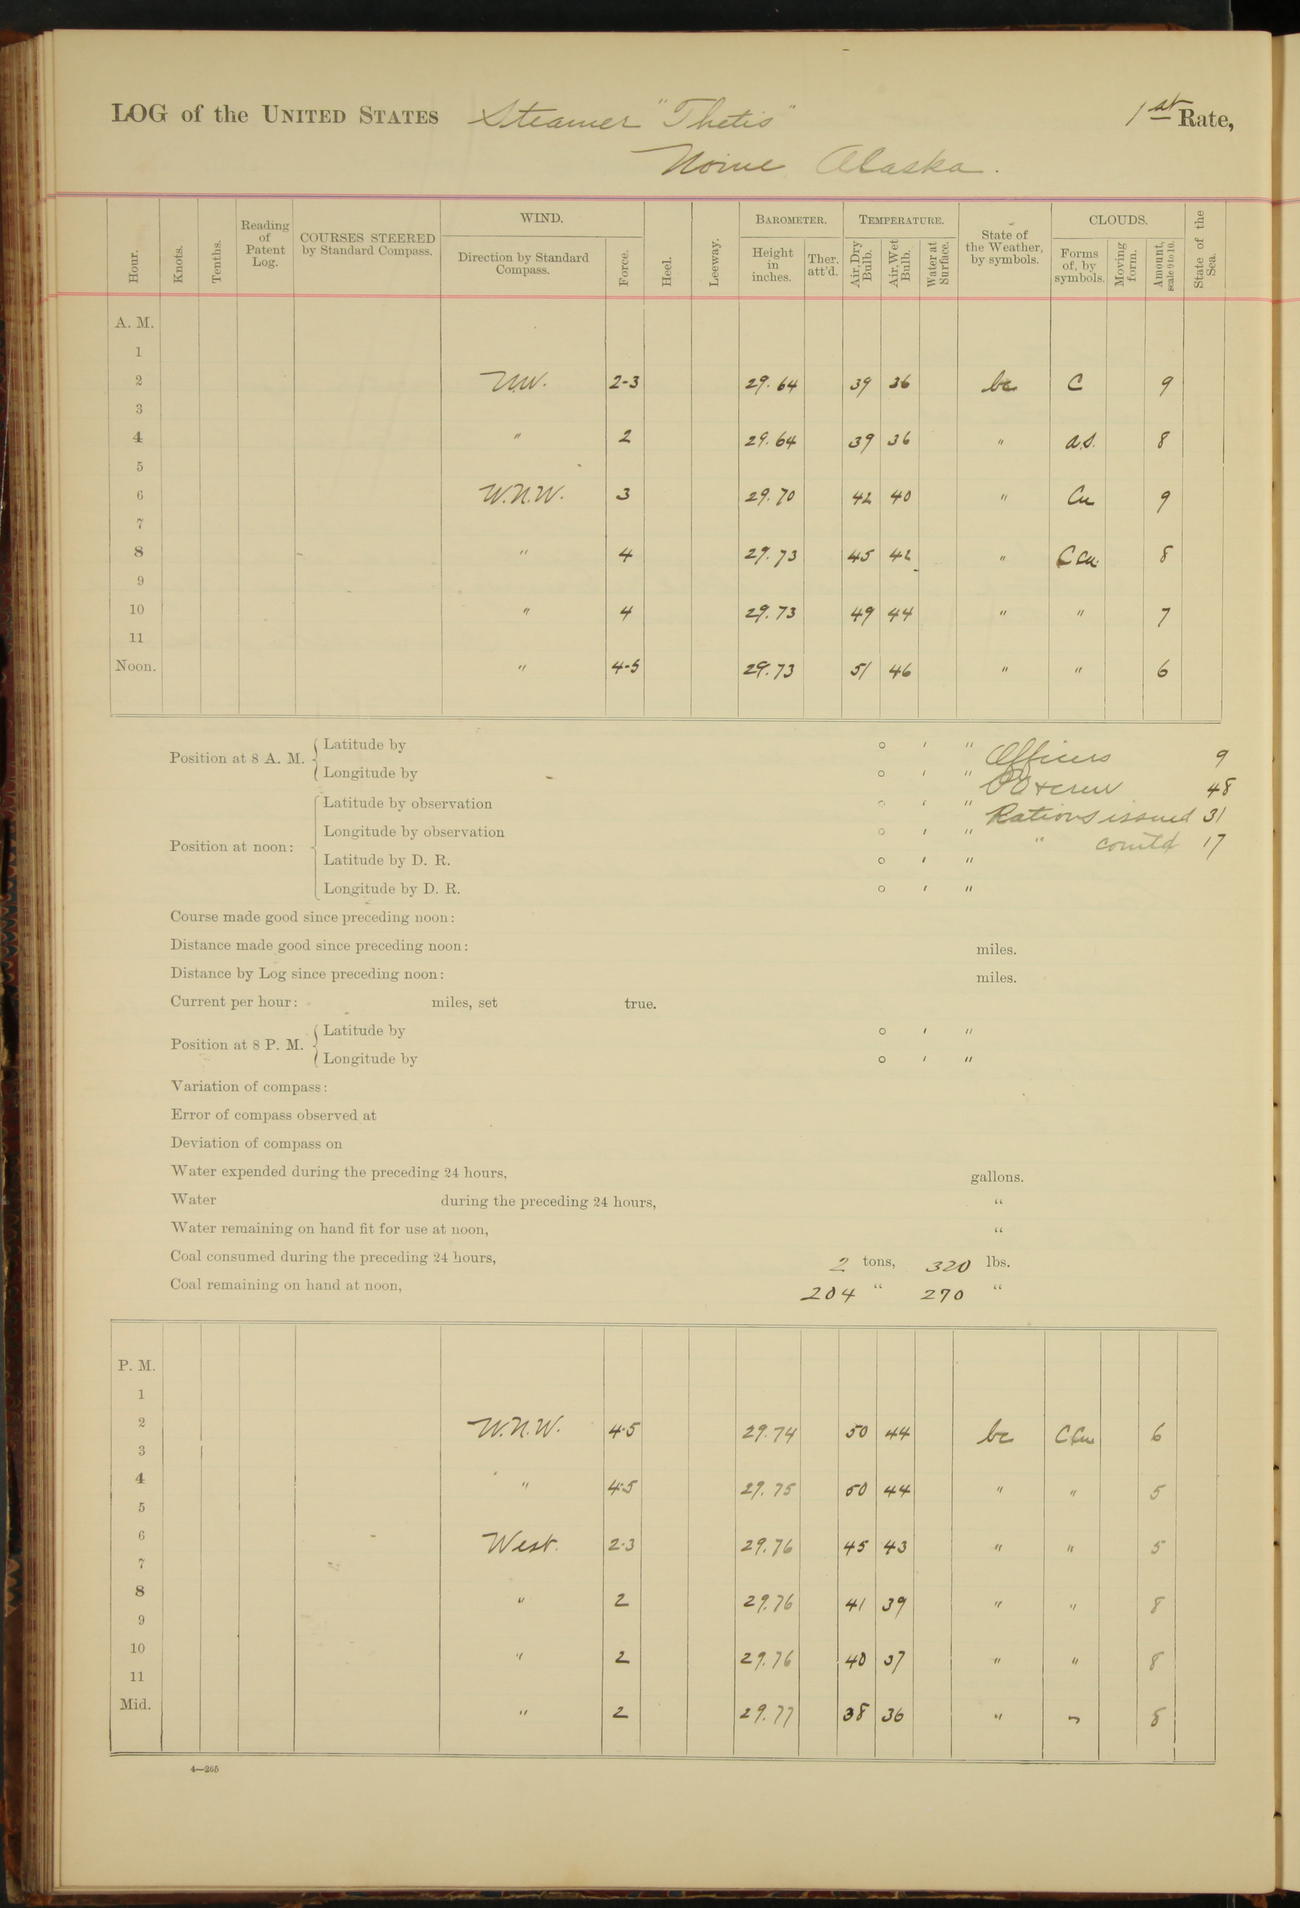 LOG of the UNITED STATES Steamer "Thetis" 1st Rate,
Nome Alaska.
Hour. Knots. Tenths. Reading of Patent Log. COURSES STEERED by Standard Compass. WIND. Direction by Standard Compass. Force. Heel. Leeway. BAROMETER. Height in inches. Ther. att'd. TEMPERATURE. Air, Dry Bulb. Air, Wet Bulb. Water at Surface. State of the Weather, by symbols. CLOUDS. Forms of, by symbols. Moving form. Amount, scale 0 to 10. State of the Sea.
A. M.
1
2 NW. 2-3 29.64 39 36 bc C 9
3
4 " 2 29.64 39 36 " a.s. 8
5
6 W.N.W. 3 29.70 42 40 " Cu 9
7
8 " 4 29.73 45 42 " C Cu. 8
9
10 " 4 29.73 49 44 " " 7
11
Noon. " 4-5 29.73 51 46 " " 6
Position at 8 A. M. Latitude by ° ' " Officers 9
Longitude by ° ' " PO & crew 48
Position at noon: Latitude by observation ° ' " Rations issued 31
Longitude by observation ° ' " " comtd 17
Latitude by D. R. ° ' "
Longitude by D. R. ° ' "
Course made good since preceding noon:
Distance made good since preceding noon: miles.
Distance by Log since preceding noon: miles.
Current per hour: miles, set true.
Position at 8 P. M. Latitude by ° ' "
Longitude by ° ' "
Variation of compass:
Error of compass observed at
Deviation of compass on
Water expended during the preceding 24 hours, gallons.
Water during the preceding 24 hours, "
Water remaining on hand fit for use at noon, "
Coal consumed during the preceding 24 hours, 2 tons, 320 lbs.
Coal remaining on hand at noon, 204 " 270 "
P. M.
1
2 W.N.W. 4-5 29.74 50 44 bc C Cu 6
3
4 " 4-5 29.75 50 44 " " 5
5
6 West. 2-3 29.76 45 43 " " 5
7
8 " 2 29.76 41 39 " " 8
9
10 " 2 29.76 40 37 " " 8
11
Mid. " 2 29.77 38 36 " " 8
4—265